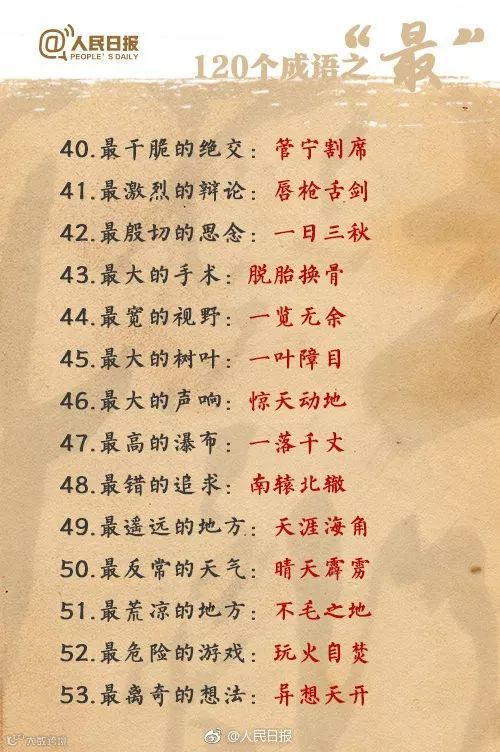 人民日报
PEOPLE'S DAILY
120个成语之“最”
40.最干脆的绝交：管宁割席
41.最激烈的辩论：唇枪舌剑
42.最殷切的思念：一日三秋
43.最大的手术：脱胎换骨
44.最宽的视野：一览无余
45.最大的树叶：一叶障目
46.最大的声响：惊天动地
47.最高的瀑布：一落千丈
48.最错的追求：南辕北辙
49.最遥远的地方：天涯海角
50.最反常的天气：晴天霹雳
51.最荒凉的地方：不毛之地
52.最危险的游戏：玩火自焚
53.最离奇的想法：异想天开
大数跨境
@人民日报